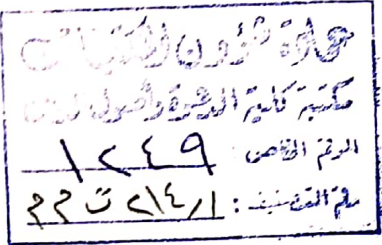 عمادة شؤون المكتبات
مكتبة كلية الدعوة وأصول الدين
الرقم الخاص: ١٢٤٩
رقم التصنيف: ٢١٤/١